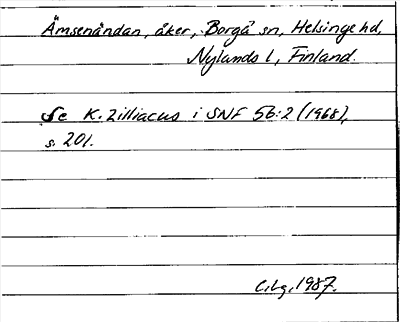 Åmsenåndan, åker, Borgå sn, Helsinge hd,
Nylands l, Finland.
Se K. Zilliacus i SNF 56:2 (1968),
s. 201.
1987.